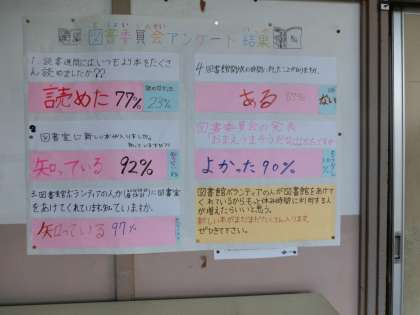 図書委員会アンケート結果
1.読書週間にはいつもより本をたくさん
読めましたか??
読めた 77%
23%
2.図書室に新しい本が入りました。
知っていますか?
知っている 92%
3.図書館ボランティアの人が
図書室
をあけてくれています。知っていますか。
知っている 97%
4.図書館
ある
ない
図書委員会の発表
よかった 90%
図書館ボランティアの人が図書館をあけて
くれているからもっと休み時間に利用する人
が増えたらいいと思う。
新しい本がまだまだたくさん入ります。
ぜひきて下さい。